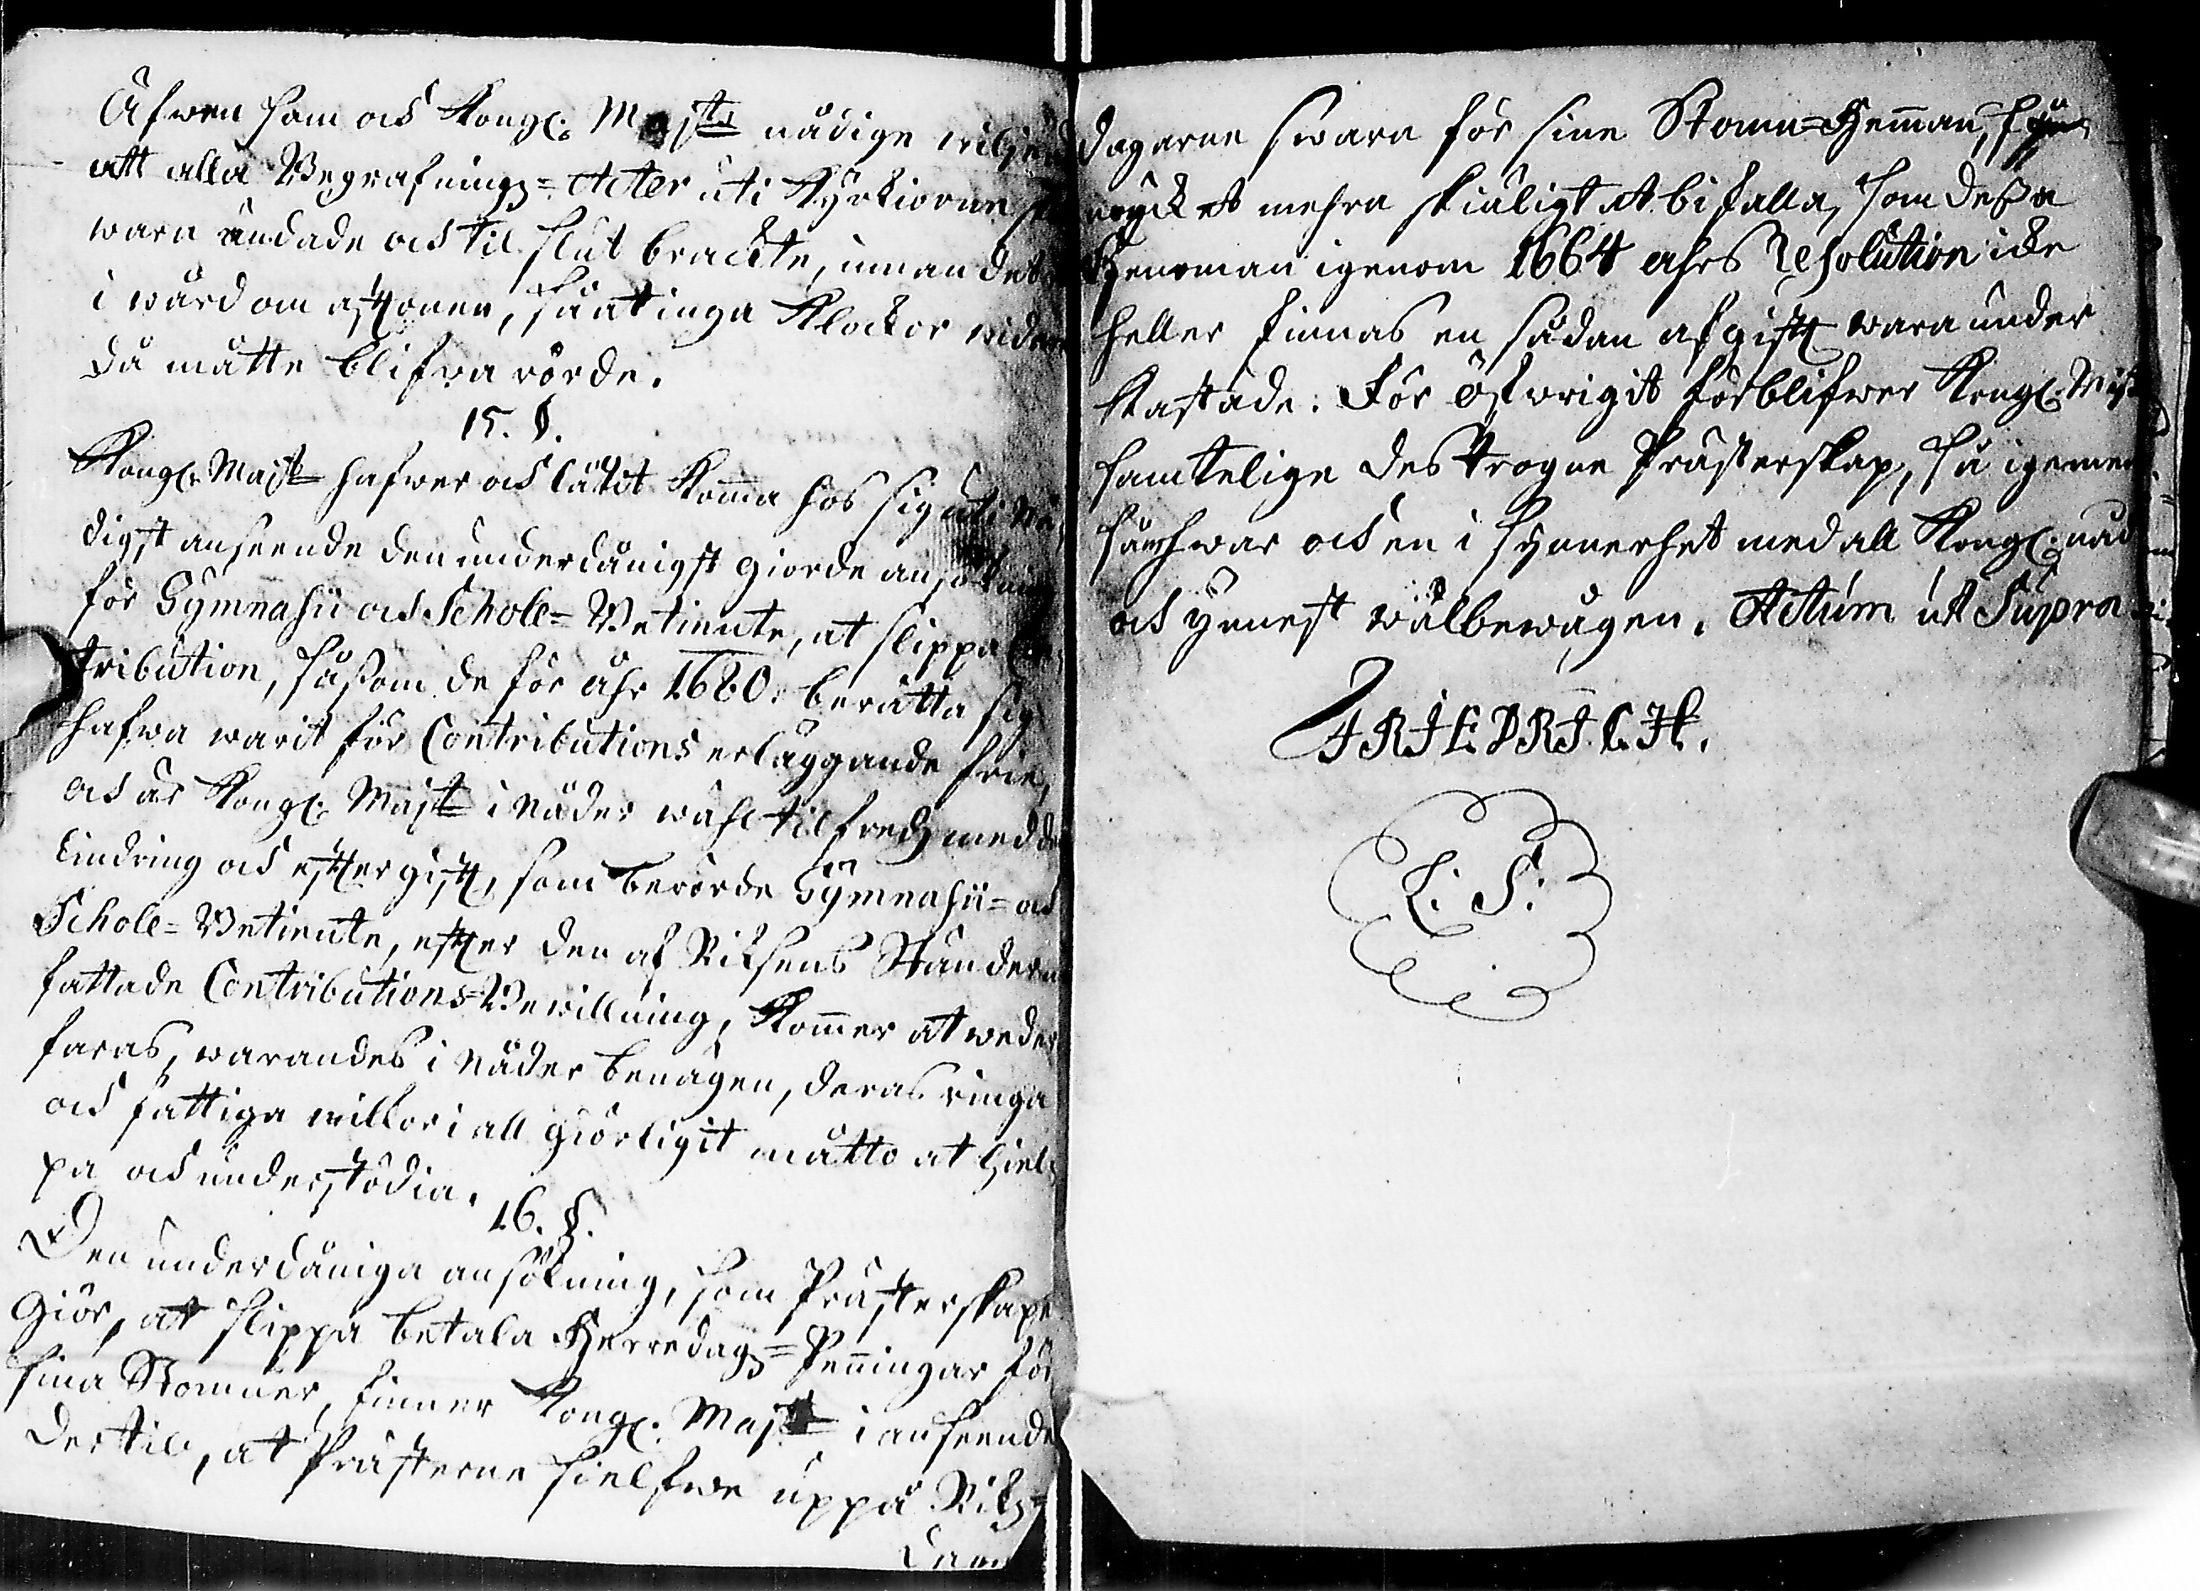 Äfwen som ock Kongl: Majts nådige willie
att alla Begrafnings=Acter uti Kyrkiorne
wara ändade och til slut brackte, innan det
i wård om afftonen, så at inga Klockor
då måtte blifwa rörde.
15. §.
Kongl. Majt hafwer ock låtit komma hos sig uti nå
digst anseende den underdånigst giorde ansökning
för Gymnasii och Schole=Betiente, at slippa Con
tribution, såsom de för åhr 1680. berätta sig
hafwa warit för Contributions erläggande frie,
och är Kongl. Majt i Nåder wähl tilfreds med den
lindring och efftergifft, som berörde Gymnasii= och
Schole=Betiente, effter den af Riksens Ständer
fattade Contributions=Bewillning, kommer at weder
faras, warandes i Nåder benägen, deras ringa
och fattiga willkor i all giörligit måtto at hiel
pa och understödia.
16. §.
Den underdåniga ansökning, som Prästerskapet
giör, at slippa betala Herredags=Penningar för
sina Stommer, finner Kongl. Majt i anseende
der til, at Prästerne sielfwe uppå Riks=
dagarne swara för sine Stomn=Hemman,
mycket mehra skiäligt at bifalla, som dessa
Hemman igenom 1664 åhrs Resolution icke
heller finnas en sådan afgifft wara under
kastade. För öfwrigit förblifwer Kongl. Majt
samtelige des trogne Prästerskap, så i gemen
som hwar och en i synnerhet med all Kongl. nåd
och ynnest wälbewågen. Actum ut Supra
FRIEDRICH.
L. S.